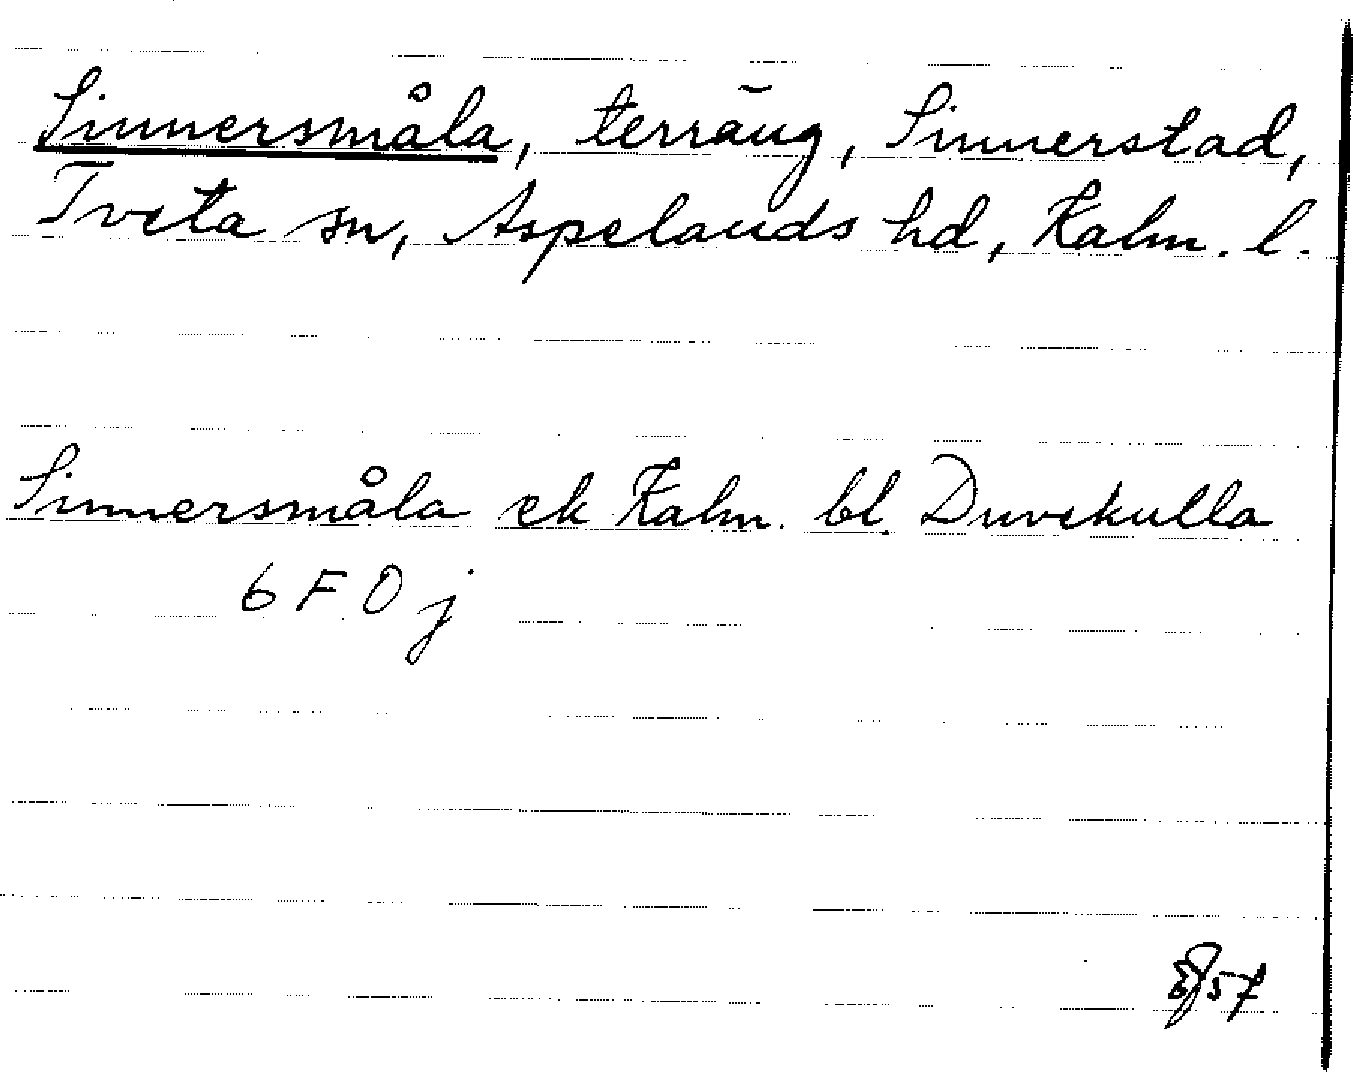 Sinnersmåla, terräng, Sinnerstad,
Tveta sn, Aspelands hd, Kalm. l.
Sinnersmåla ek Kalm. bl. Duvekulla
6 F 0 j
57